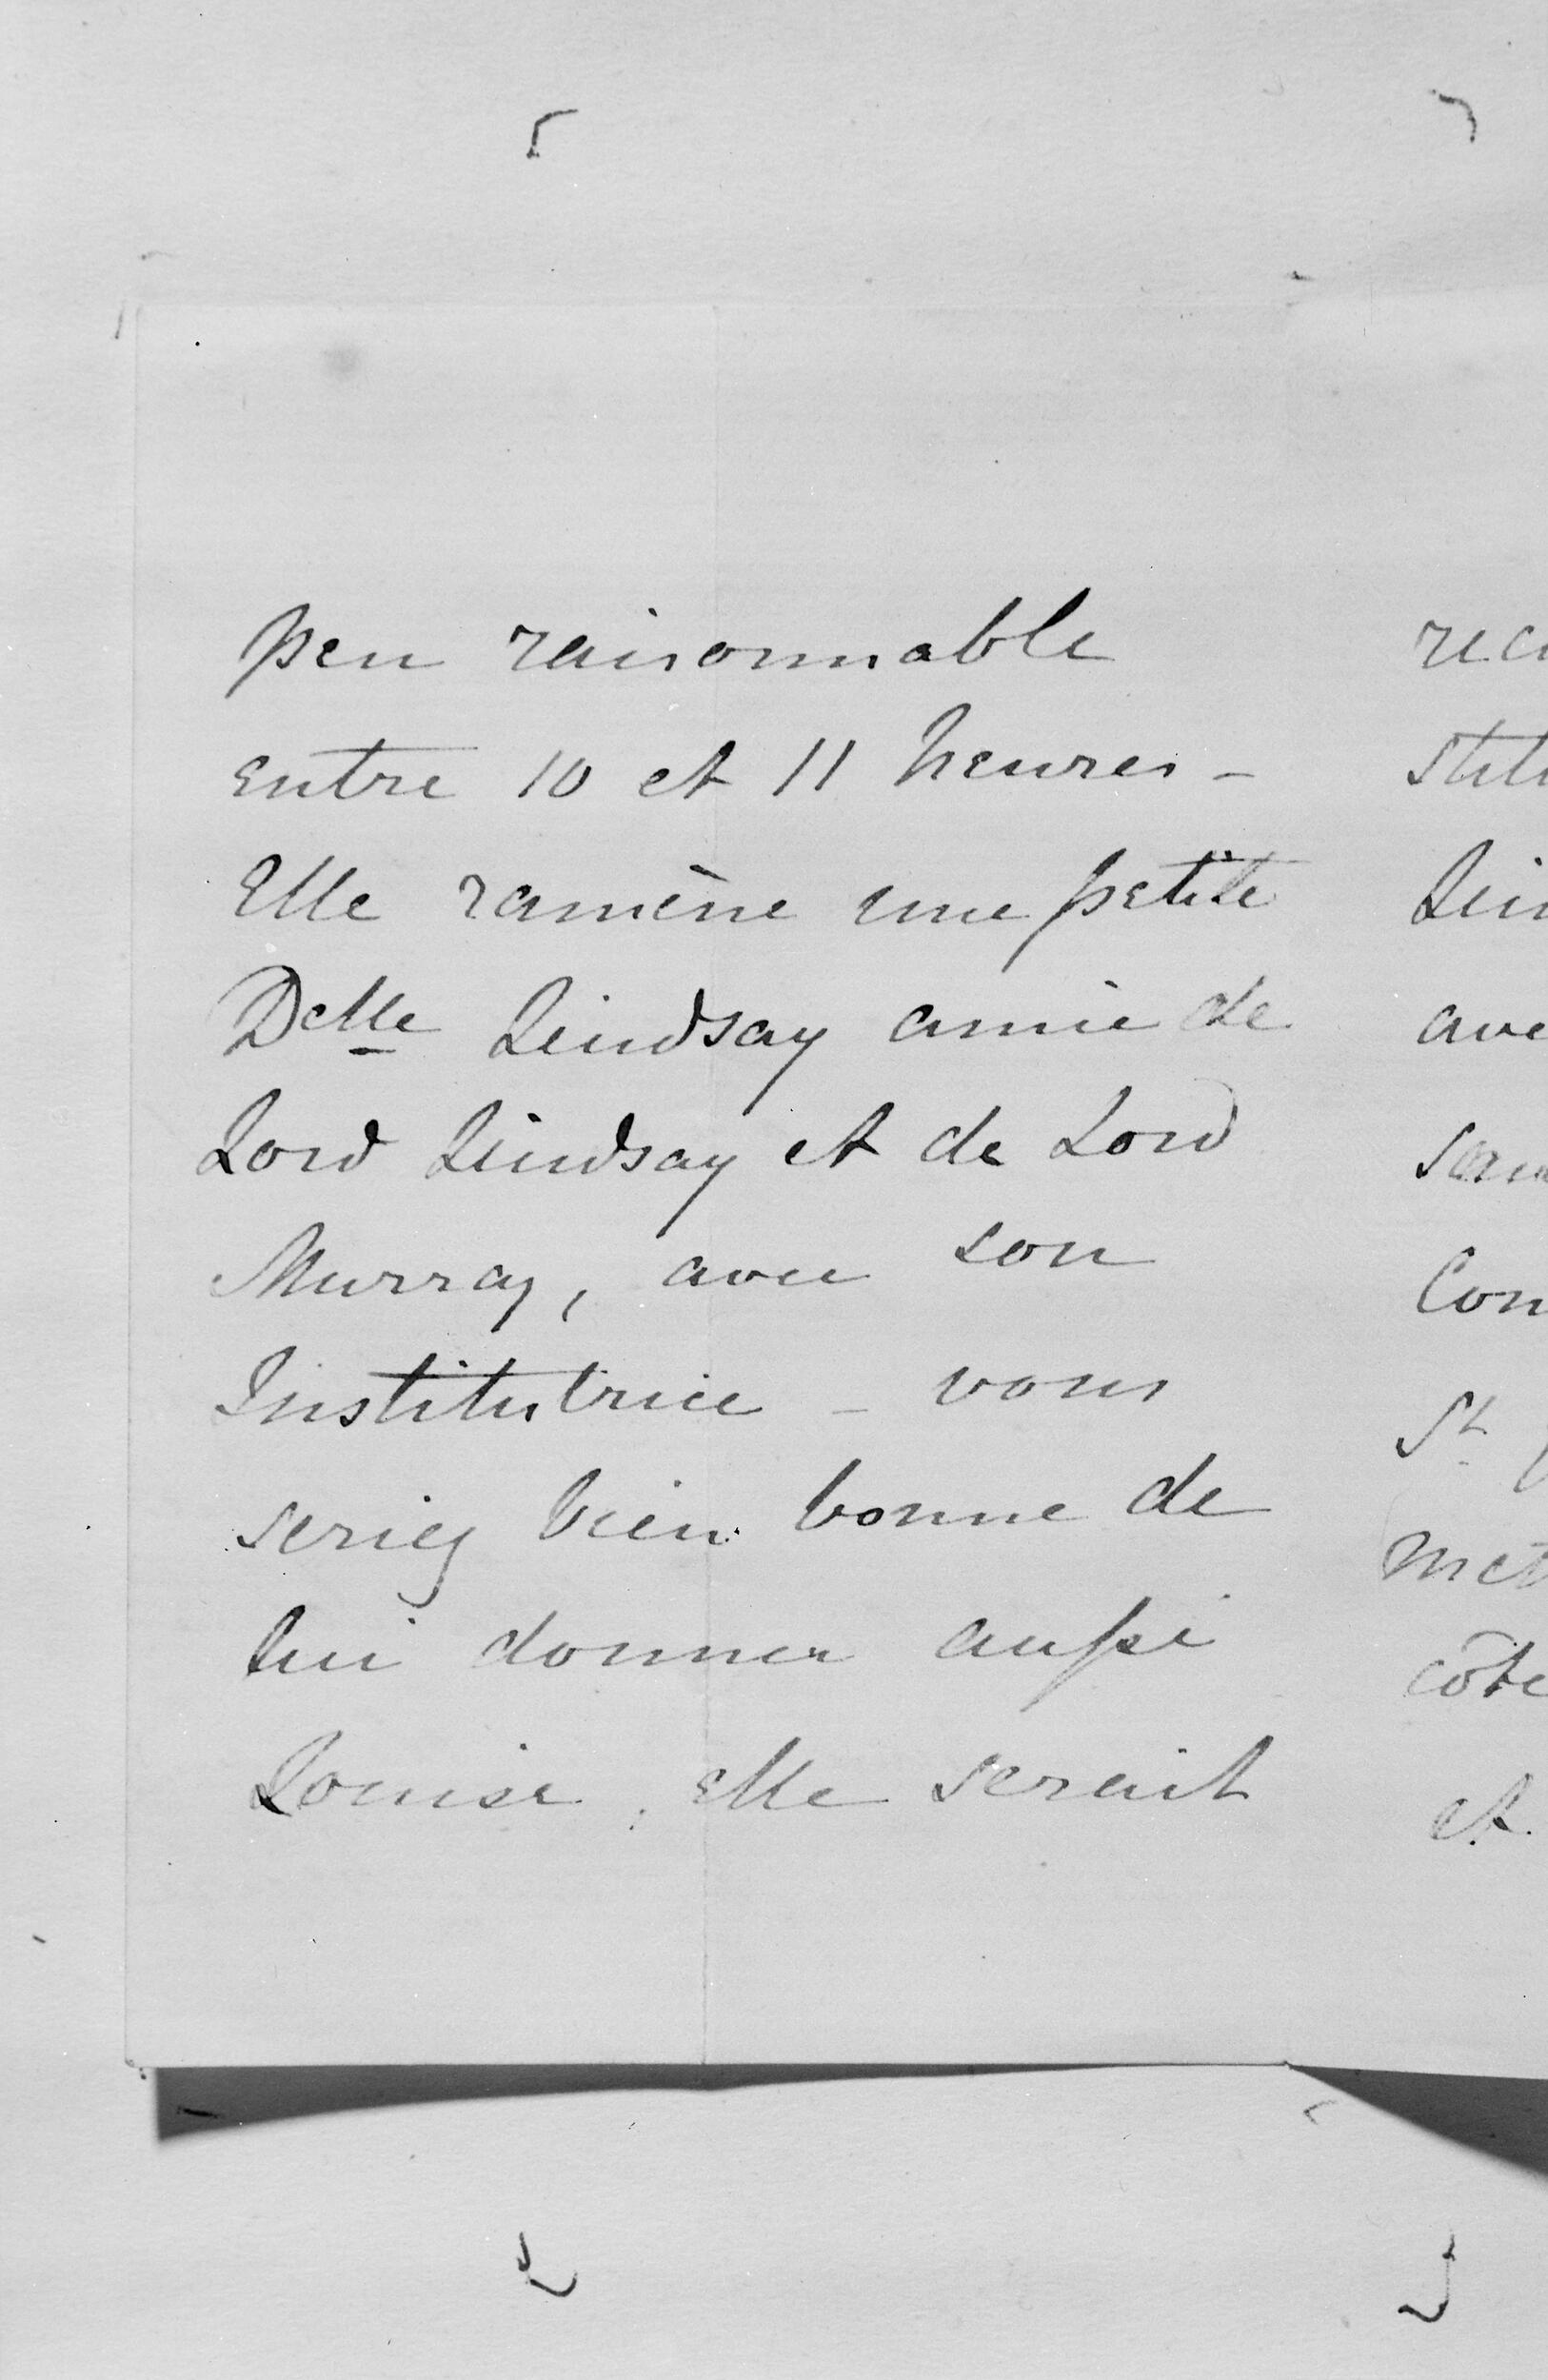 peu raisonnable
entre 10 et 11 heures -
Elle ramène une petite
Delle Lindsay amie de
Lord Lindsay et de Lord
Murray, avec son
Institutrice - vous
seriez bien bonne de
lui donner aussi
Louise, elle serait
stit
Lin
ave
Com
St
met
côte
et